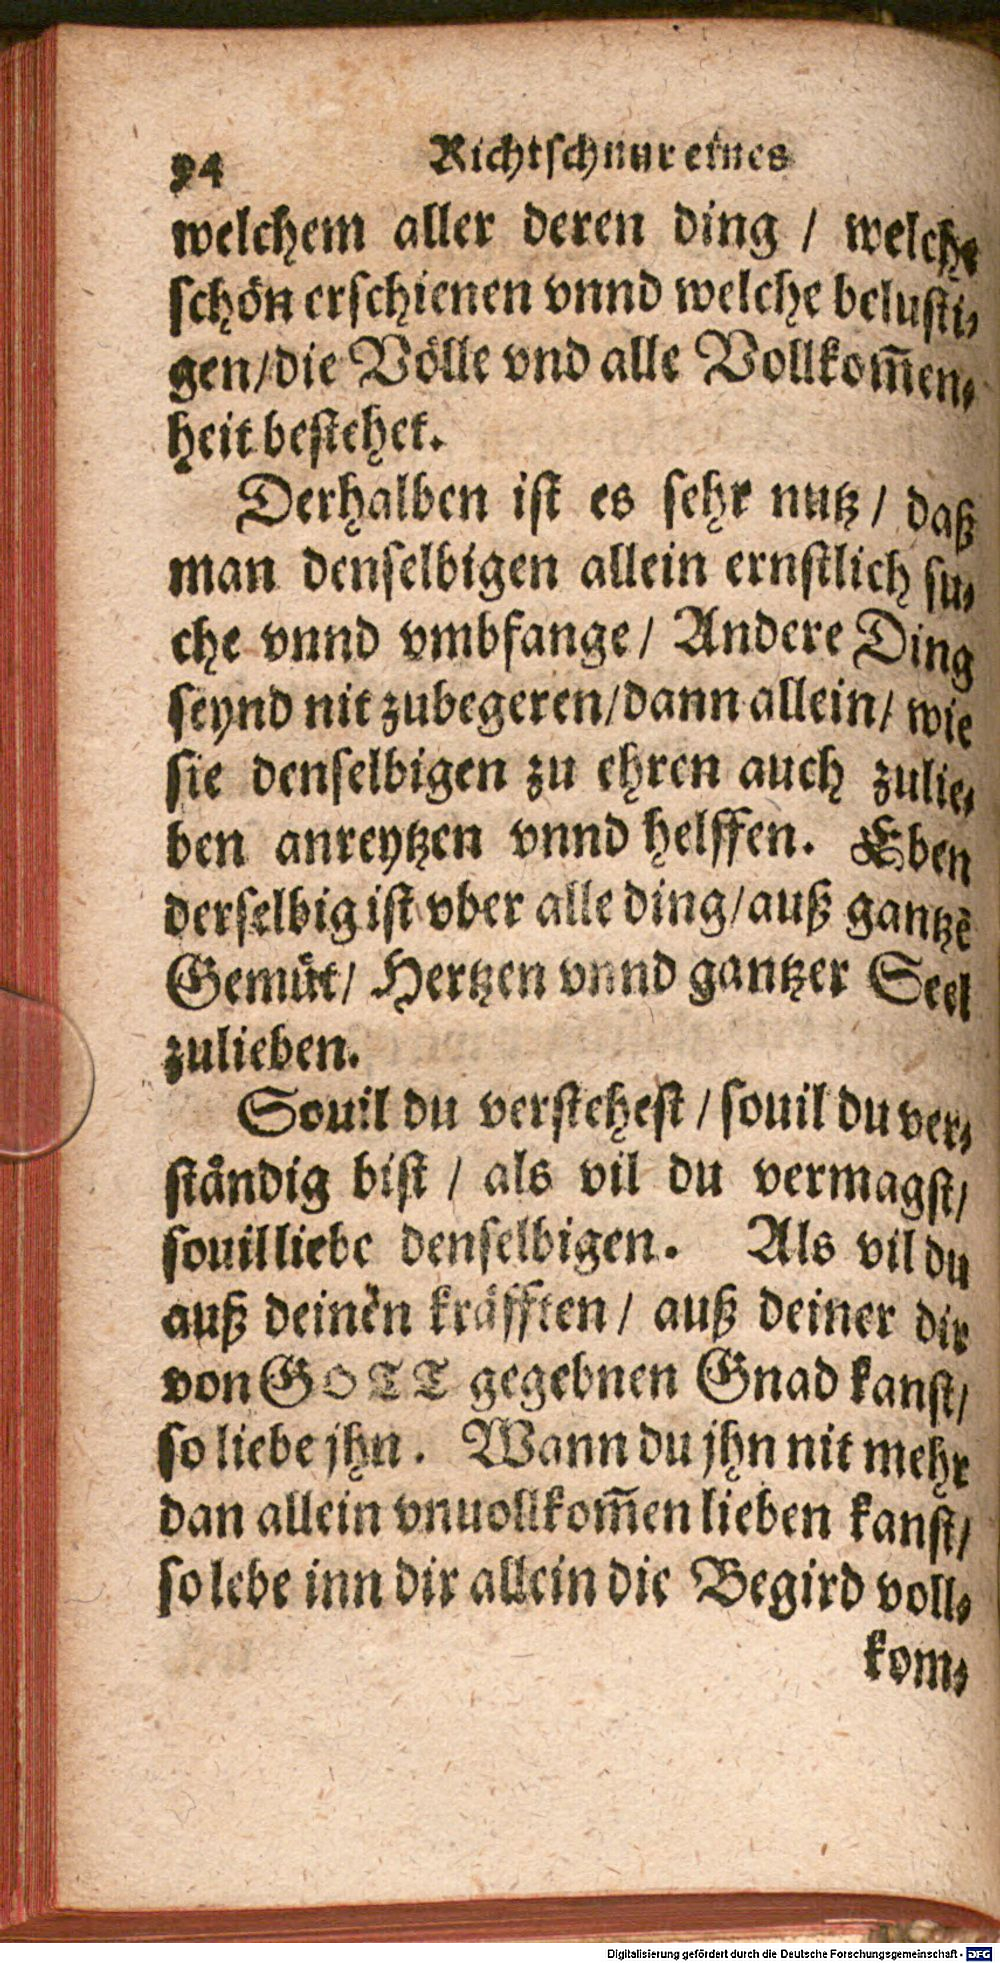 94 Richtschnur eines
welchem aller deren ding / welche
schön erschienen vnnd welche belusti⸗
gen/die Völle vnd alle Vollkom̃en⸗
heit bestehet.
Derhalben ist es sehr nutz / daß
man denselbigen allein ernstlich su⸗
che vnnd vmbfange / Andere Ding
seynd nit zubegeren/dann allein/ wie
sie denselbigen zu ehren auch zulie⸗
ben anreytzen vnnd helffen. Eben
derselbig ist vber alle ding/auß gantzē
Gemüt/ Hertzen vnnd gantzer Seel
zulieben.
Souil du verstehest / souil du ver⸗
ständig bist / als vil du vermagst/
souil liebe denselbigen. Als vil du
auß deinen kräfften / auß deiner dir
von GOTT gegebnen Gnad kanst/
so liebe jhn. Wann du jhn nit mehr
dan allein vnuollkom̃en lieben kanst/
so lebe inn dir allein die Begird voll⸗
kom⸗
Digitalisierung gefördert durch die Deutsche Forschungsgemeinschaft - DFG